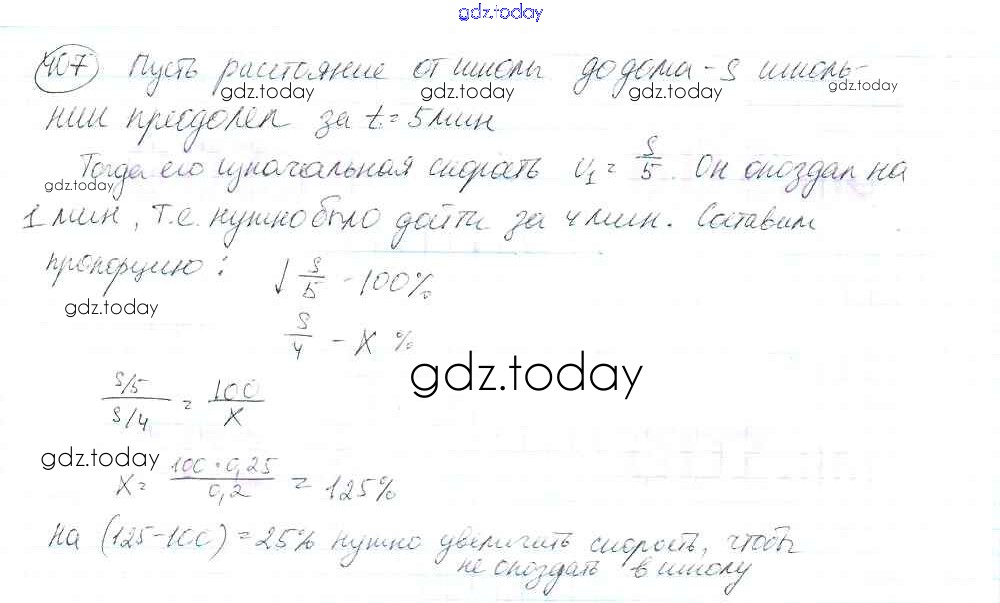 gdz.today
407 Пусть расстояние от школы до дома - S школь-
gdz.today gdz.today gdz.today
ник преодолел за t = 5 мин
Тогда его изначальная скорость v₁ = S/5. Он опоздал на
gdz.today gdz.today gdz.today gdz.today
1 мин, т.е. нужно было дойти за 4 мин. Составим
пропорцию: ↓ S/5 - 100%
gdz.today
S/4 - x %
gdz.today
(S/5)/(S/4) = 100/x
gdz.today
x = (100 · 0,25)/0,2 = 125%
gdz.today
на (125-100) = 25% нужно увеличить скорость, чтобы
не опоздать в школу